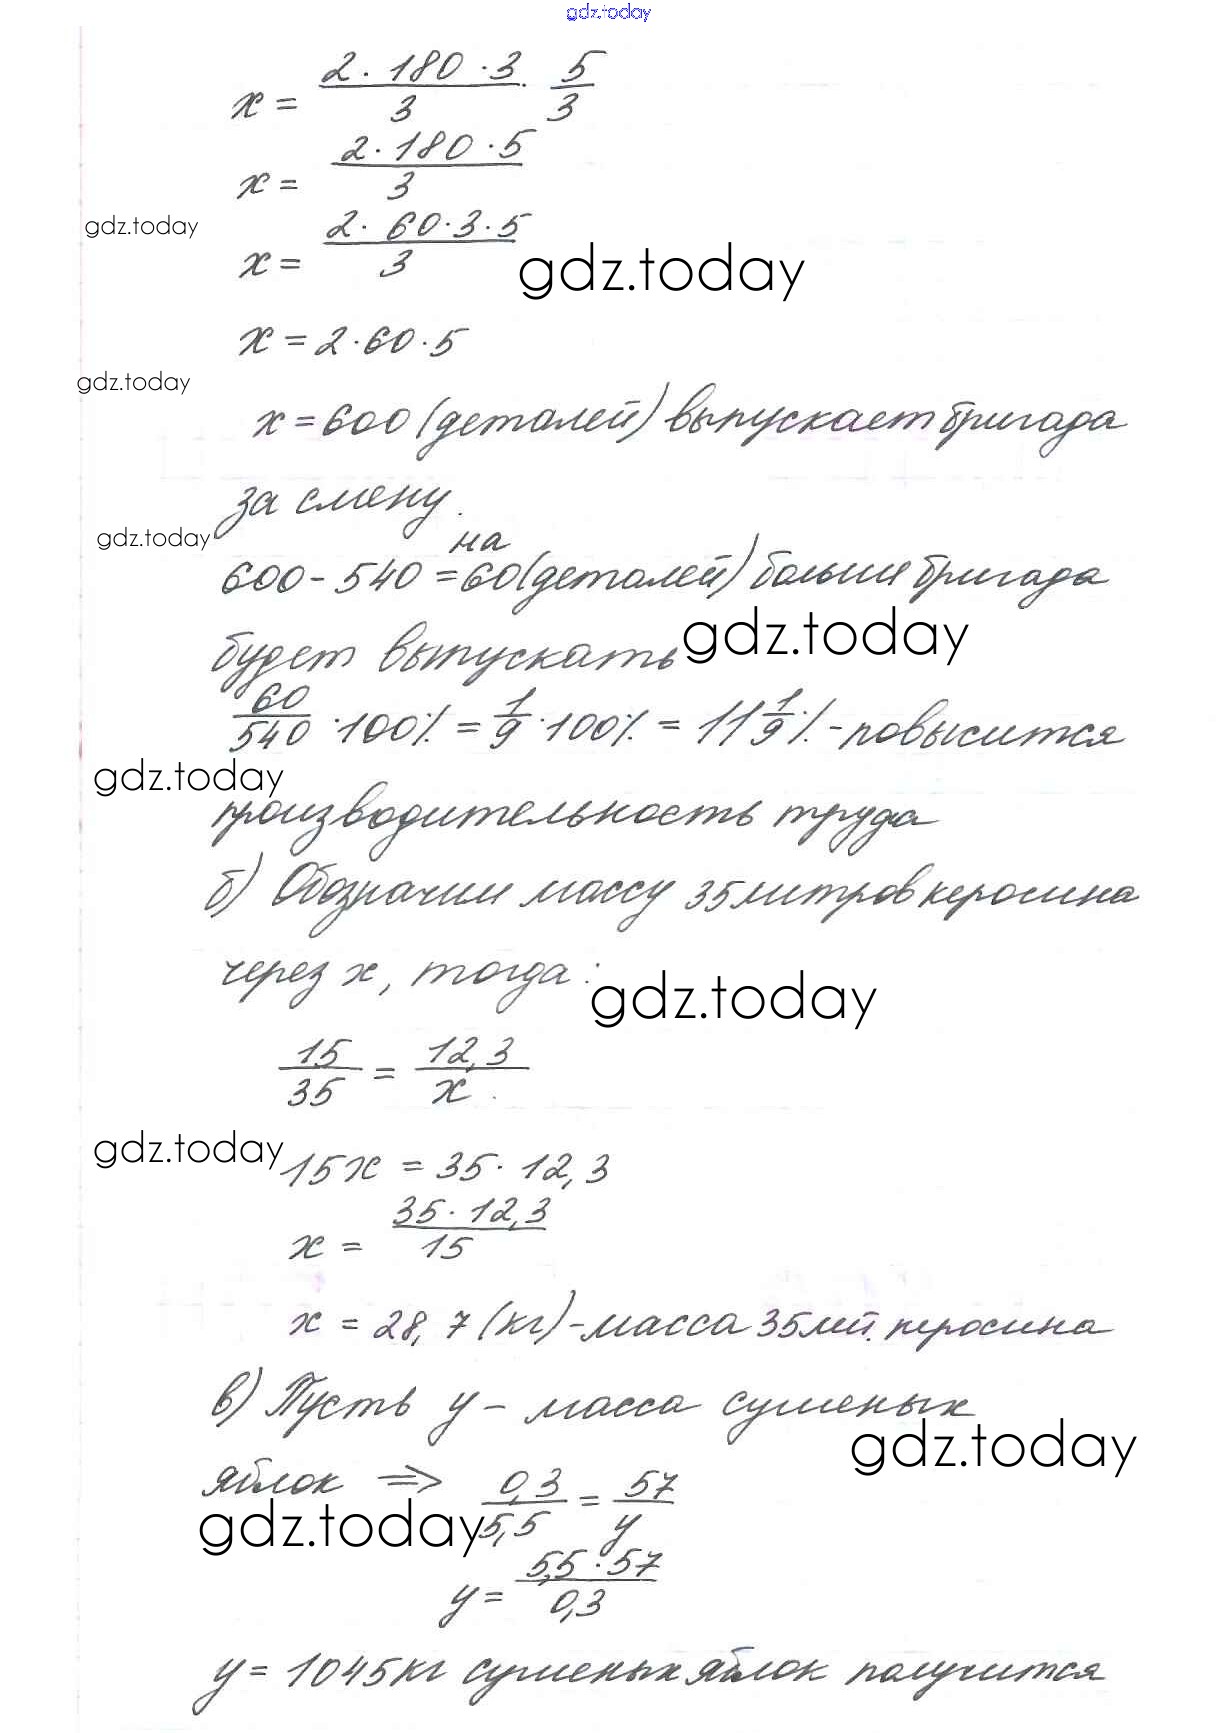 gdz.today
x = 2·180·3/3 · 5/3
x = 2·180·5/3
gdz.today
x = 2·60·3·5/3
gdz.today
x = 2·60·5
gdz.today
x = 600 (деталей) выпускает бригада
за смену.
gdz.today
на
600 - 540 = 60 (деталей) больше бригада
будет выпускать
gdz.today
60/540 · 100% = 1/9 · 100% = 11 1/9 % - повысится
gdz.today
производительность труда
б) Обозначим массу 35 литров керосина
через x, тогда:
gdz.today
15/35 = 12,3/x
gdz.today
15x = 35 · 12,3
x = 35·12,3/15
x = 28,7 (кг) - масса 35 керосина
в) Пусть y - масса сушеных
gdz.today
яблок => 0,3/5,5 = 57/y
gdz.today
y = 5,5·57/0,3
y = 1045 кг сушеных яблок получится